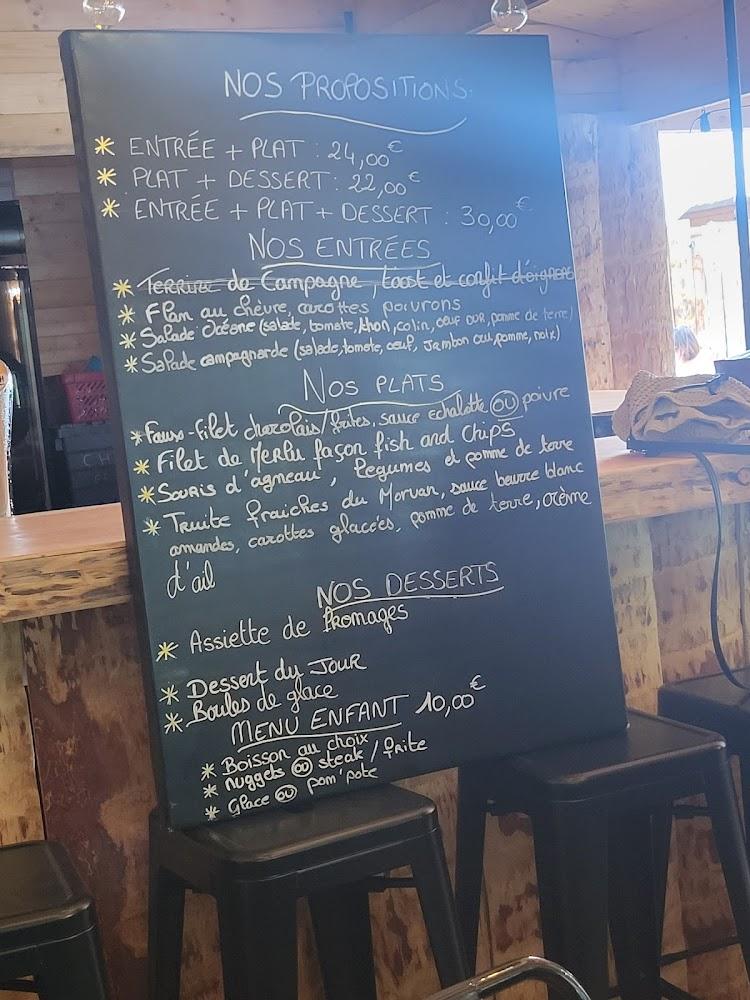 NOS PROPOSITIONS
* ENTRÉE + PLAT : 24,00€
* PLAT + DESSERT : 22,00€
* ENTRÉE + PLAT + DESSERT : 30,00€
NOS ENTRÉES
* Terrine de Campagne, toast et confit d'oignons
* Flan au chèvre, carottes poivrons
* Salade Océane (salade, tomate, thon, colin, oeuf DUR, pomme de terre)
* Salade campagnarde (salade, tomate, oeuf, Jambon cru, pomme, noix)
NOS PLATS
* Faux-filet charolais/frites, sauce Echalotte OU poivre
* Filet de Merlu façon fish and chips
* Souris d'agneau, légumes et pomme de terre
* Truite fraiches du Morvan, sauce beurre blanc
amandes, carottes glacées, pomme de terre, crème
d'ail
NOS DESSERTS
* Assiette de fromages
* Dessert du JOUR
* Boules de glace
MENU ENFANT 10,00€
* Boisson au choix
* nuggets OU steak / frite
* Glace OU pom'pote